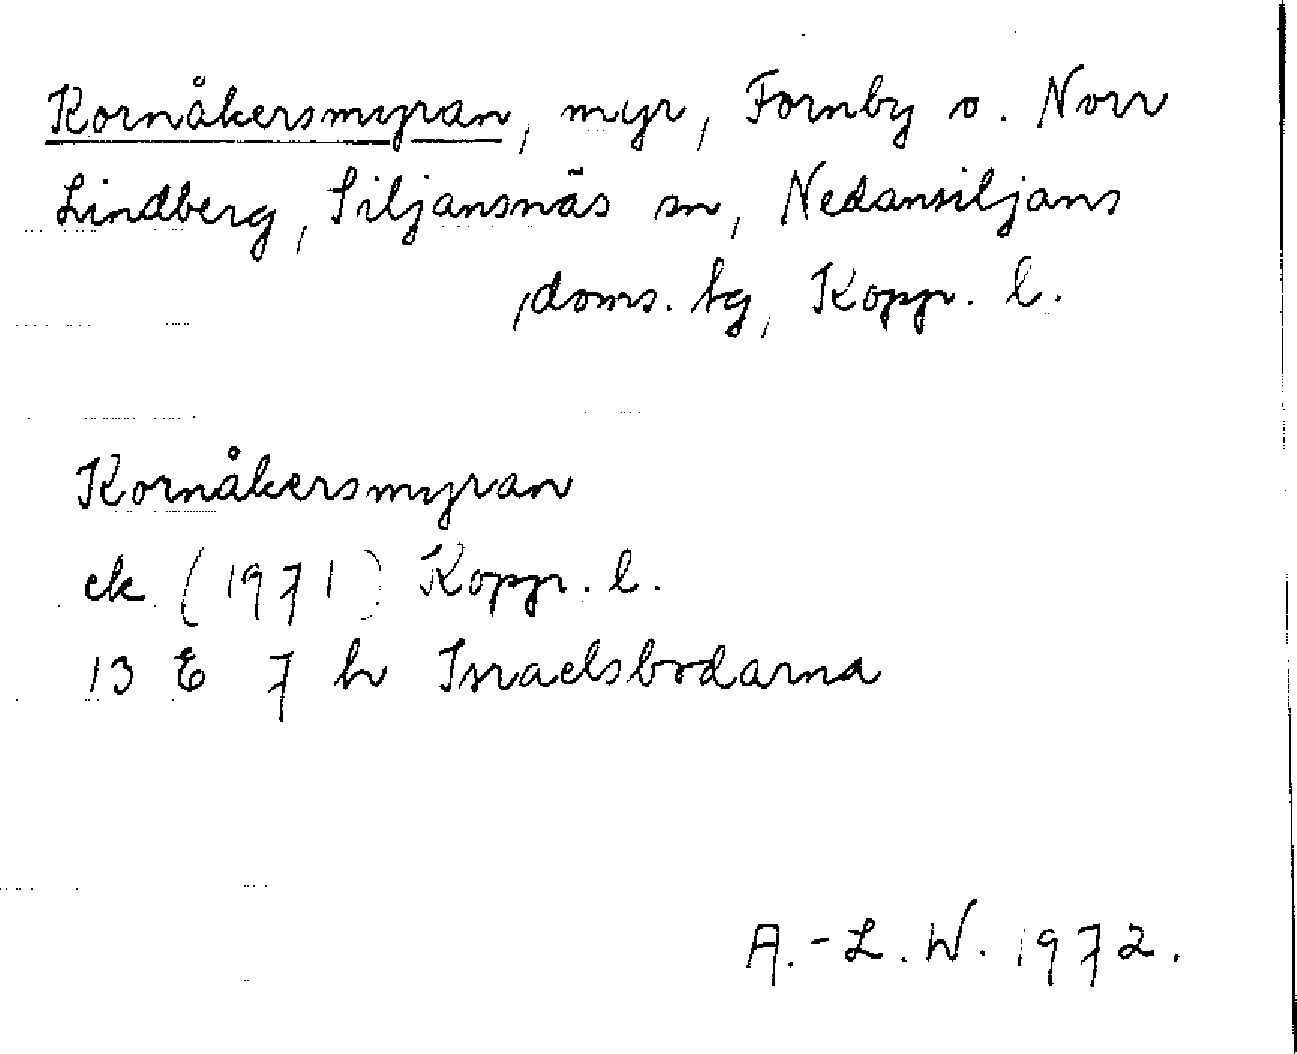 Kornåkersmyran, myr, Fornby o. Norr
Lindberg, Siljansnäs sn, Nedansiljans
doms. tg, Kopp. l.
Kornåkersmyran
ek (1971) Kopp. l.
13 E 7 h Israelsbodarna
A.-L. W. 1972.